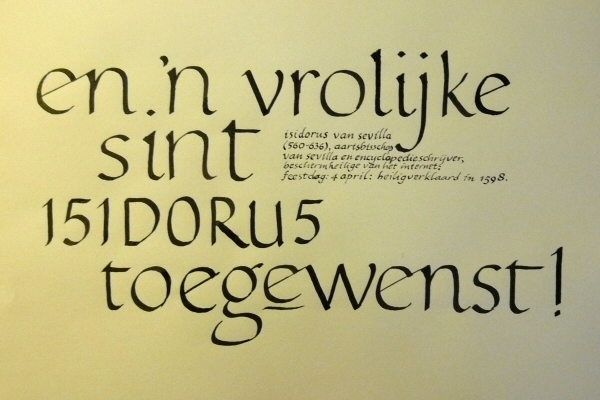 en.'n vrolijke
sint
isidorus van sevilla
(560-636), aartsbisschop
van sevilla en encyclopedieschrijver,
beschermheilige van het internet;
feestdag: 4 april: heiligverklaard in 1598.
151DORU5
toegewenst!